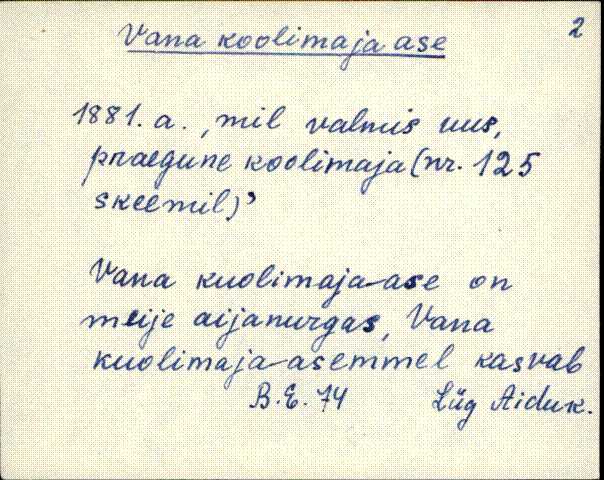 2
Vana koolimaja ase
1881. a., mil valmis uus,
praegune koolimaja (nr. 125
skeemil)’
Vana kuolimaja-ase on
meije aijanurgas, Vana
kuolimaja-asemmel kasvab
B. E. 74 Lüg Aiduk.